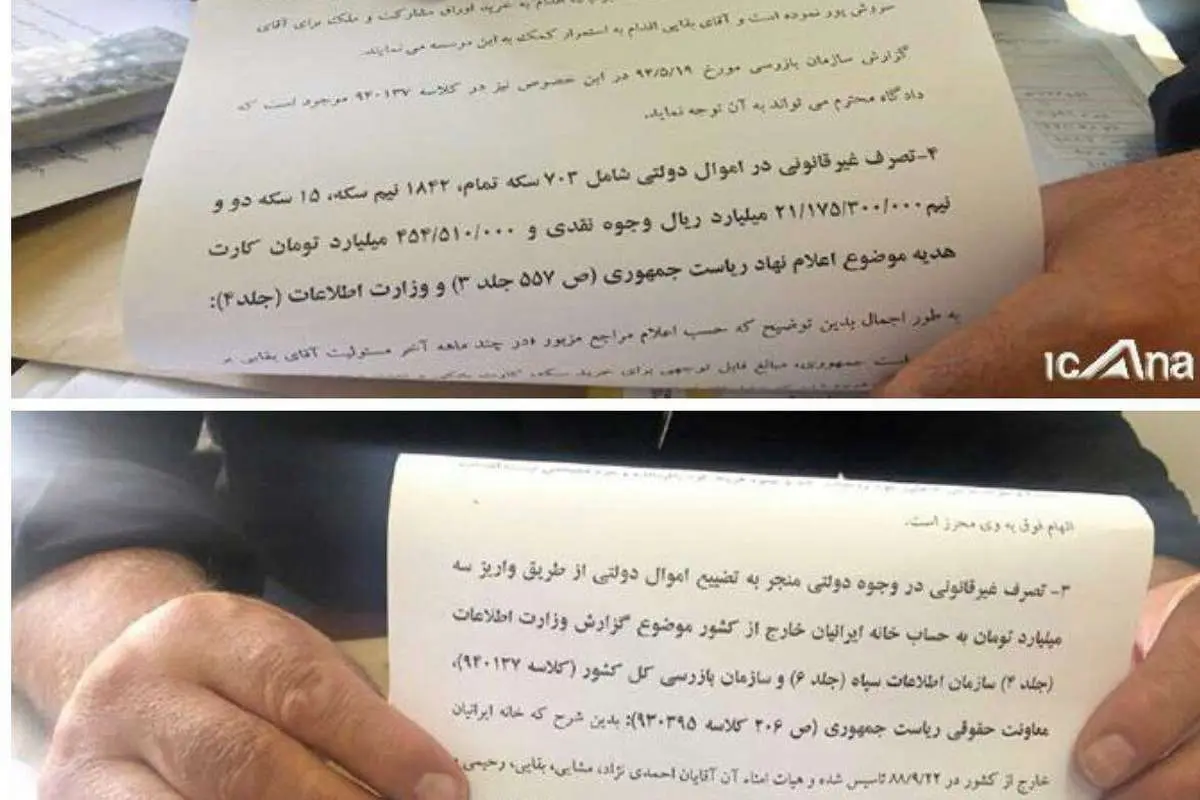 سروش پور نموده است و آقای بقایی اقدام به استمرار کمک به این موسسه می نمایند.
گزارش سازمان بازرسی مورخ ۹۲/۵/۱۹ در این خصوص نیز در کلاسه ۹۴۰۱۳۷ موجود است که
دادگاه محترم می تواند به آن توجه نماید.
۴-تصرف غیرقانونی در اموال دولتی شامل ۷۰۳ سکه تمام، ۱۸۴۲ نیم سکه، ۱۵ سکه دو و
نیم ۲۱/۱۷۵/۳۰۰/۰۰۰ میلیارد ریال وجوه نقدی و ۴۵۴/۵۱۰/۰۰۰ میلیارد تومان کارت
هدیه موضوع اعلام نهاد ریاست جمهوری (ص ۵۵۷ جلد ۳) و وزارت اطلاعات (جلد۴):
به طور اجمال بدین توضیح که حسب اعلام مراجع مزبور در چند ماهه آخر مسئولیت آقای بقایی
جمهوری، مبالغ قابل توجهی برای خرید سکه، کارت
ICANA
اتهام فوق به وی محرز است.
۳- تصرف غیرقانونی در وجوه دولتی منجر به تضییع اموال دولتی از طریق واریز سه
میلیارد تومان به حساب خانه ایرانیان خارج از کشور موضوع گزارش وزارت اطلاعات
(جلد ۴) سازمان اطلاعات سپاه (جلد ۶) و سازمان بازرسی کل کشور (کلاسه ۹۴۰۱۳۷)،
معاونت حقوقی ریاست جمهوری (ص ۲۰۶ کلاسه ۹۳۰۳۹۵): بدین شرح که خانه ایرانیان
خارج از کشور در ۸۸/۹/۲۲ تاسیس شده و هیات امناء آن آقایان احمدی نژاد، مشایی، بقایی، رحیمی